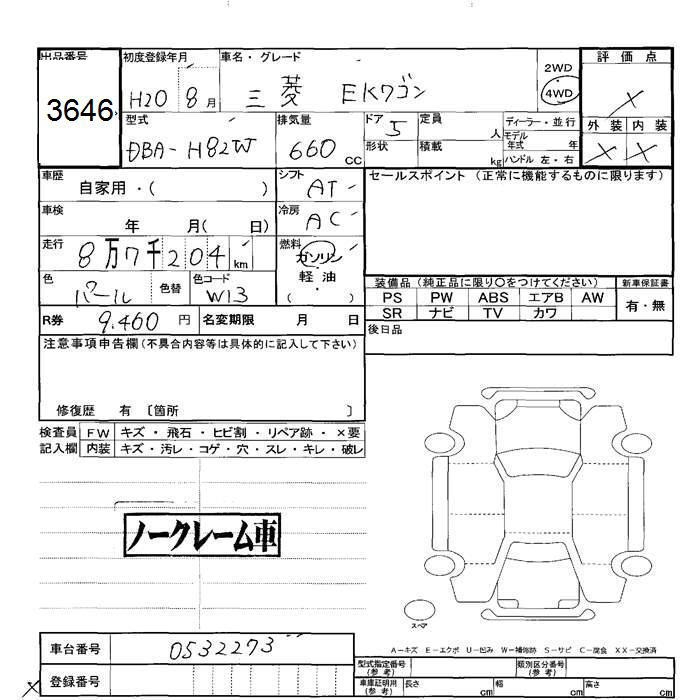 出品番号 初度登録年月 車名・グレード 評価点
3646 H20 8月 三菱 EKワゴン 2WD 4WD ×
型式 排気量 ドア 5 定員 人 ディーラー・並行 外装 内装
DBA-H82W 660 CC 形状 積載 kg モデル年式 年 ハンドル 左・右 × ×
車歴 自家用・( ) シフト AT セールスポイント (正常に機能するものに限ります)
車検 年 月( 日) 冷房 AC
走行 8万7千204 km 燃料 ガソリン
色 パール 色替 色コード W13 軽油 ( )
装備品 (純正品に限り○をつけてください) 新車保証書
PS PW ABS エアB AW 有・無
SR ナビ TV カワ
R券 9.460 円 名変期限 月 日 後日品
注意事項申告欄(不具合内容等は具体的に記入して下さい)
修復歴 有 〔箇所 〕
検査員 FW キズ・飛石・ヒビ割・リペア跡・×要
記入欄 内装 キズ・汚レ・コゲ・穴・スレ・キレ・破レ
ノークレーム車
スペア
A-キズ E-エクボ U-凹み W-補修跡 S-サビ C-腐食 XX-交換済
車台番号 0532273 型式指定番号 (参考) 類別区分番号 (参考)
登録番号 車庫証明用 (参考) 長さ cm 幅 cm 高さ cm
×